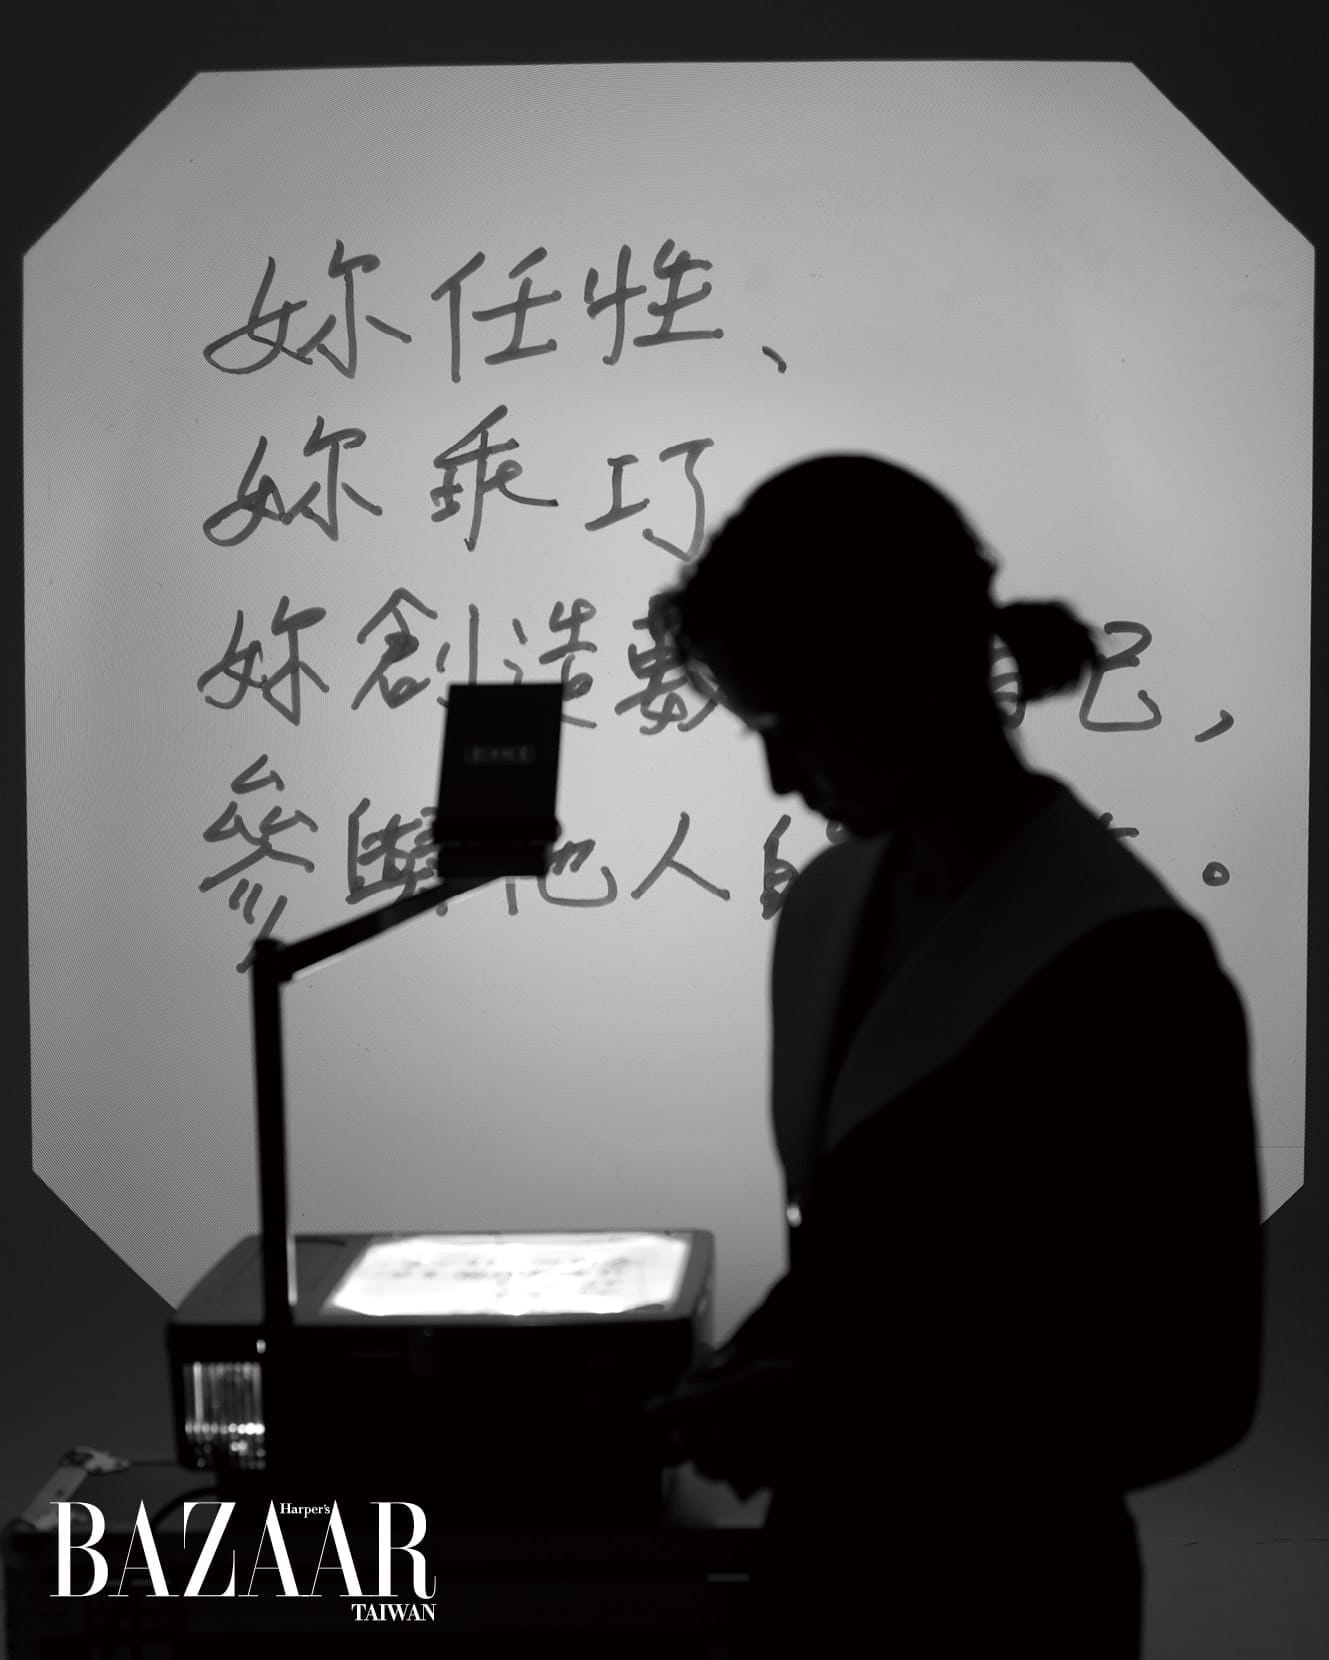 妳任性、
妳乖巧
妳創造數 己，
參與他人的 。
Harper's
BAZAAR
TAIWAN